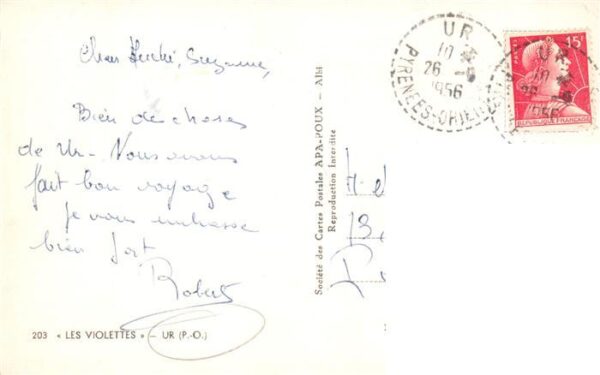 Chers Suzanne,
Bien des choses
de Ur - Nous avons
fait bon voyage
je vous embrasse
bien fort
Robert
203 « LES VIOLETTES » - UR (P.-O.)
Société des Cartes Postales APA-POUX - Albi
Reproduction Interdite
UR
10
26
1956
PYRENEES-ORIENTALES
15F
POSTES
REPUBLIQUE FRANÇAISE
UR
10
26
1956